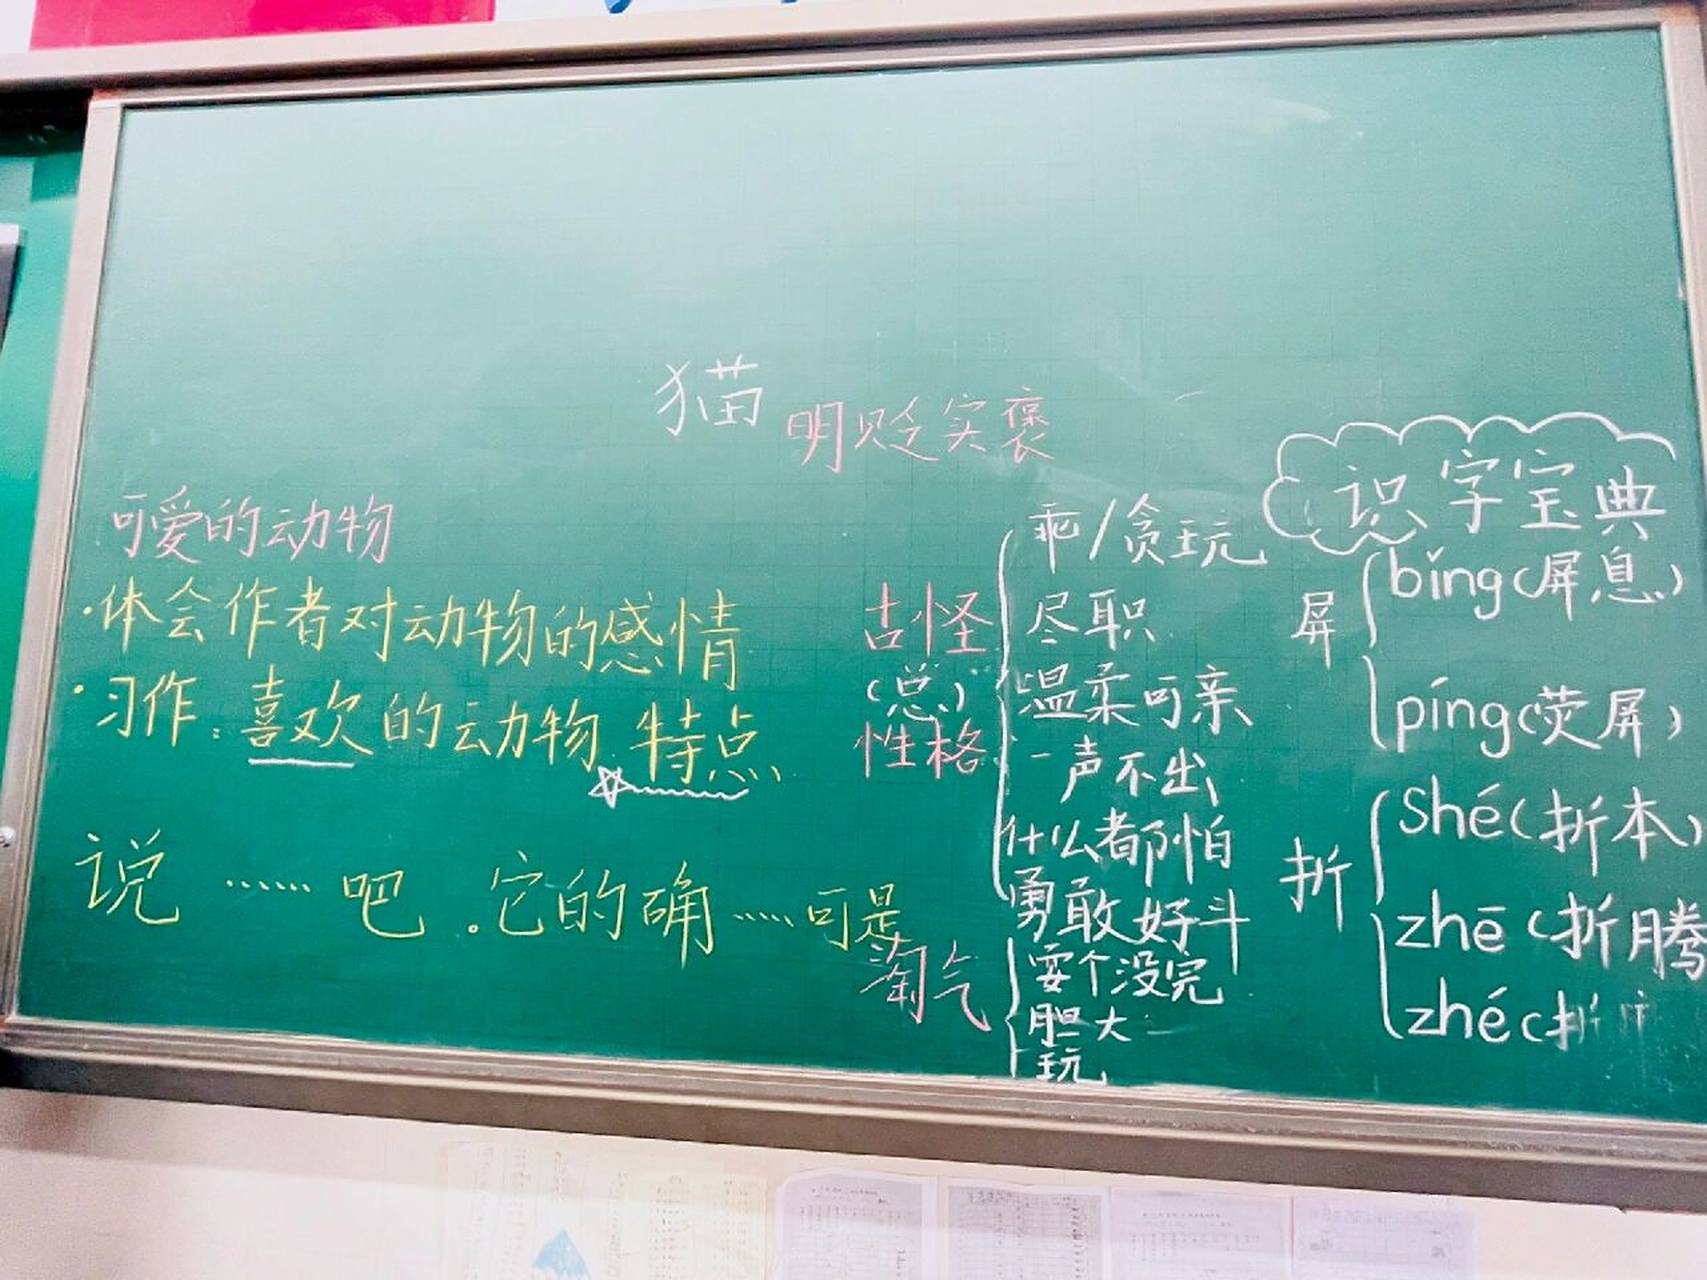 猫
明贬实褒
可爱的动物
·体会作者对动物的感情
·习作：喜欢的动物 特点
说……吧，它的确……可是
古怪
（总）
性格
乖/贪玩
尽职
温柔可亲
一声不出
什么都怕
勇敢好斗
淘气
耍个没完
胆大
玩
识字宝典
屏
bǐng（屏息）
píng（荧屏）
折
shé（折本）
zhē（折腾
zhé（折